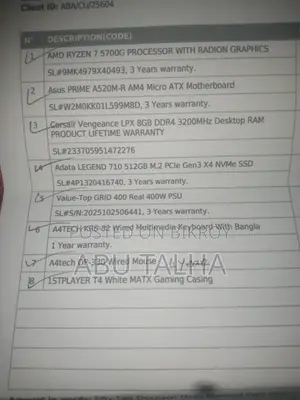 Client ID: ABA/CU/25604
N° DESCRIPTION(CODE)
1 AMD RYZEN 7 5700G PROCESSOR WITH RADION GRAPHICS
SL#9MK4979X40493, 3 Years warranty.
2 Asus PRIME A520M-R AM4 Micro ATX Motherboard
SL#W2M0KK01L599M8D, 3 Years warranty.
3 Corsair Vengeance LPX 8GB DDR4 3200MHz Desktop RAM
PRODUCT LIFETIME WARRANTY
SL#233705951472276
4 Adata LEGEND 710 512GB M.2 PCIe Gen3 X4 NVMe SSD
SL#4P1320416740, 3 Years warranty.
5 Value-Top GRID 400 Real 400W PSU
SL#S/N:2025102506441, 3 Years warranty.
6 A4TECH KRS-82 Wired Multimedia Keyboard With Bangla
1 Year warranty.
POSTED ON BIKROY
ABU TALHA
7 A4tech OP-330 Wired Mouse
8 1STPLAYER T4 White MATX Gaming Casing